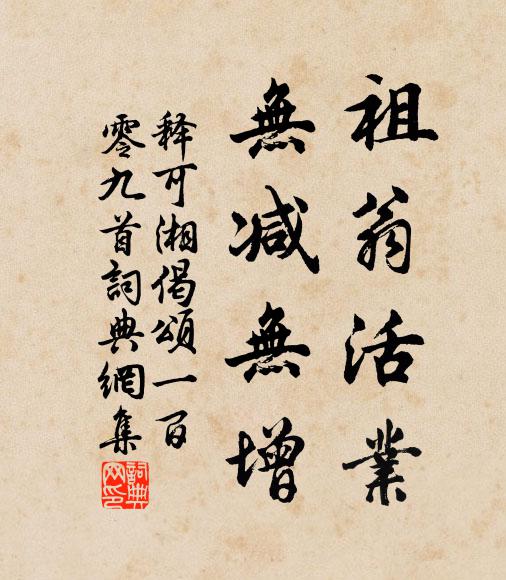 祖翁活業
無减無增
释可湘偈頌一百
零九首詞典網集
詞典网印